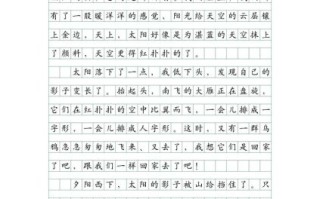 有了一股暖洋洋的感觉。阳光给天空的云层镶
上金边，天上，太阳好像是为湛蓝的天空抹上
了颜料，天空更得红扑扑的了。
太阳落下了一点，我低下头，发现自己的
影子变长了。抬起头，南飞的大雁正在盘旋，
它们在红扑扑的空中比翼而飞。一会儿排成一
字形，一会儿排成人字形。这时，又有一群乌
鸦急急匆匆地飞来，又去了，我想它们是回家
了吧，跟我们一样回家去了吧！
夕阳西下，太阳的影子被山给挡住了。只